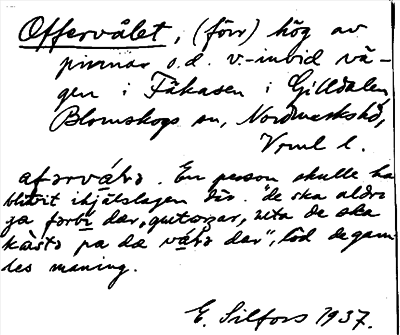 Offervålet, (förr) hög av
pinnar o.d. v.-invid vä-
gen i Fäkasen i Gilldalen
Blomskogs sn, Nordmarks hd,
Vrml l.
En person skulle ha
blivit ihjälslagen där. "de ska aldri
ga förbi dar, uta de ska
kàsta pa de våls dar", löd de gam
les maning.
E. Silfors 1937.